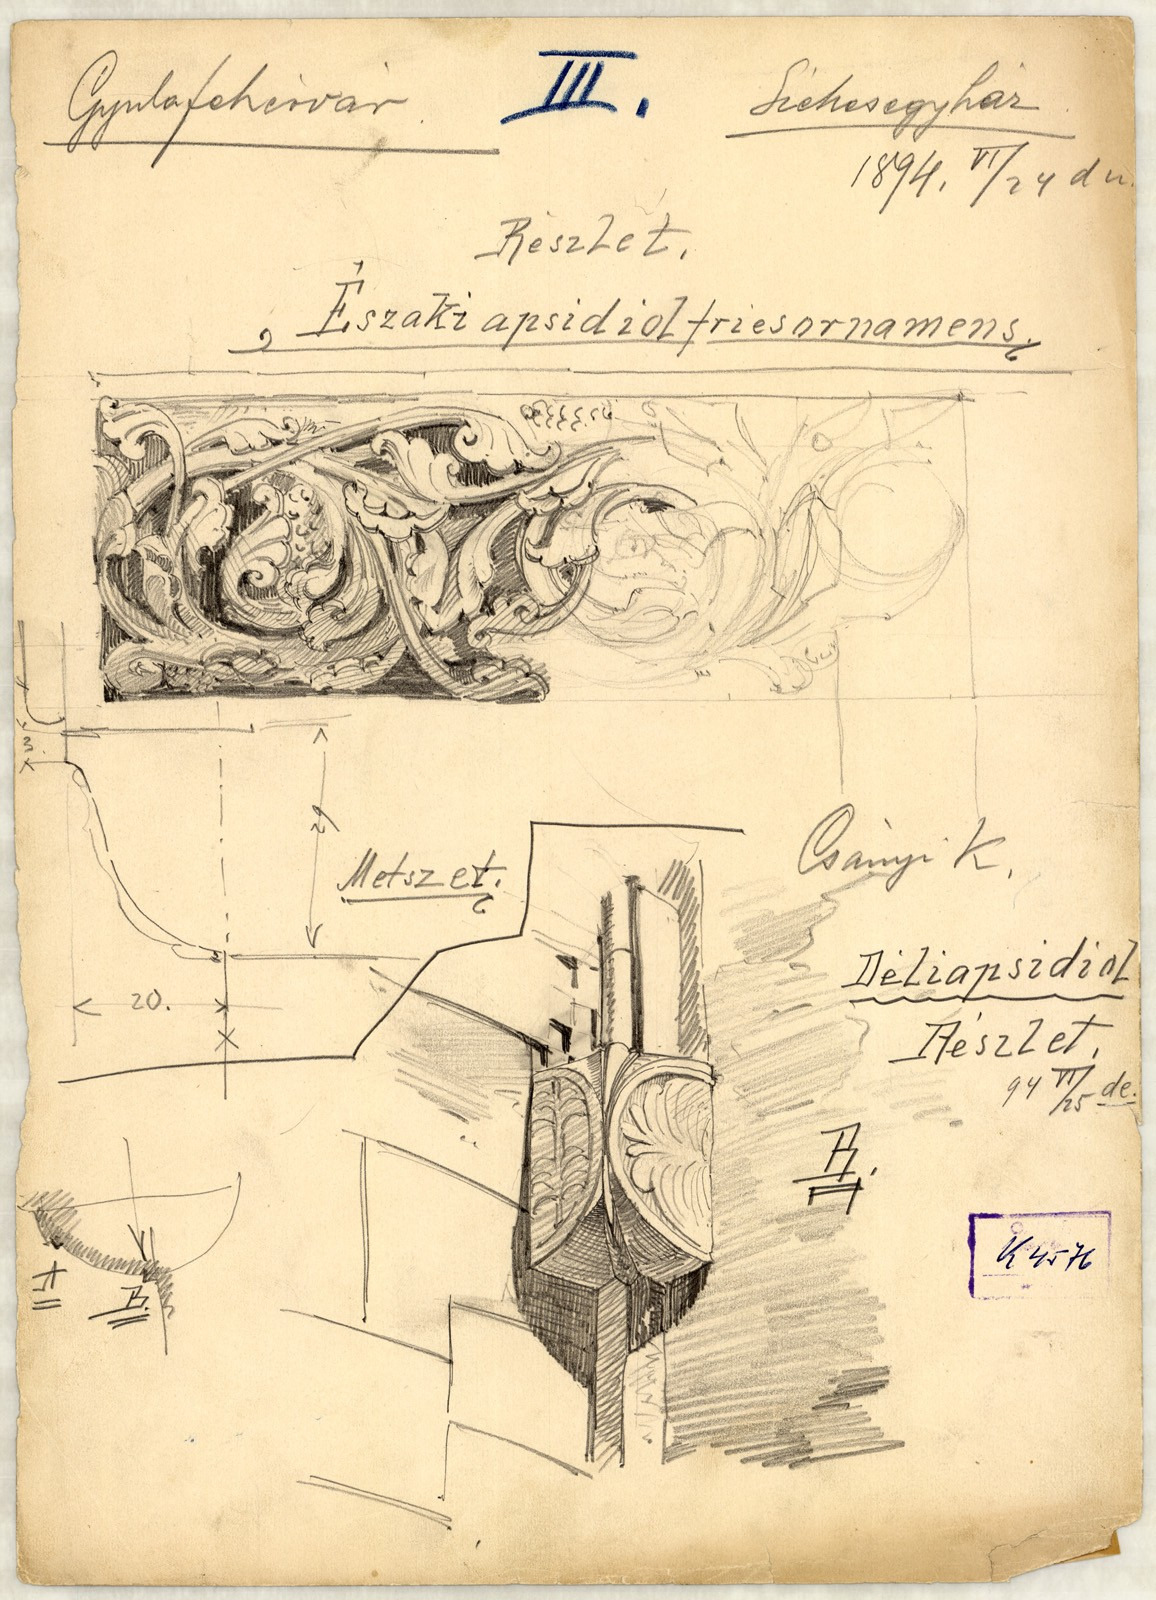 Gyulafehérvár
III.
Székesegyház
1894. VI/24 du.
Részlet.
Északi apsidiol friesornamens.
3.
29
Metszet.
20.
Csányi K.
Déli apsidiol
Részlet.
94 VI/25 de.
B.
A
B.
K 4576